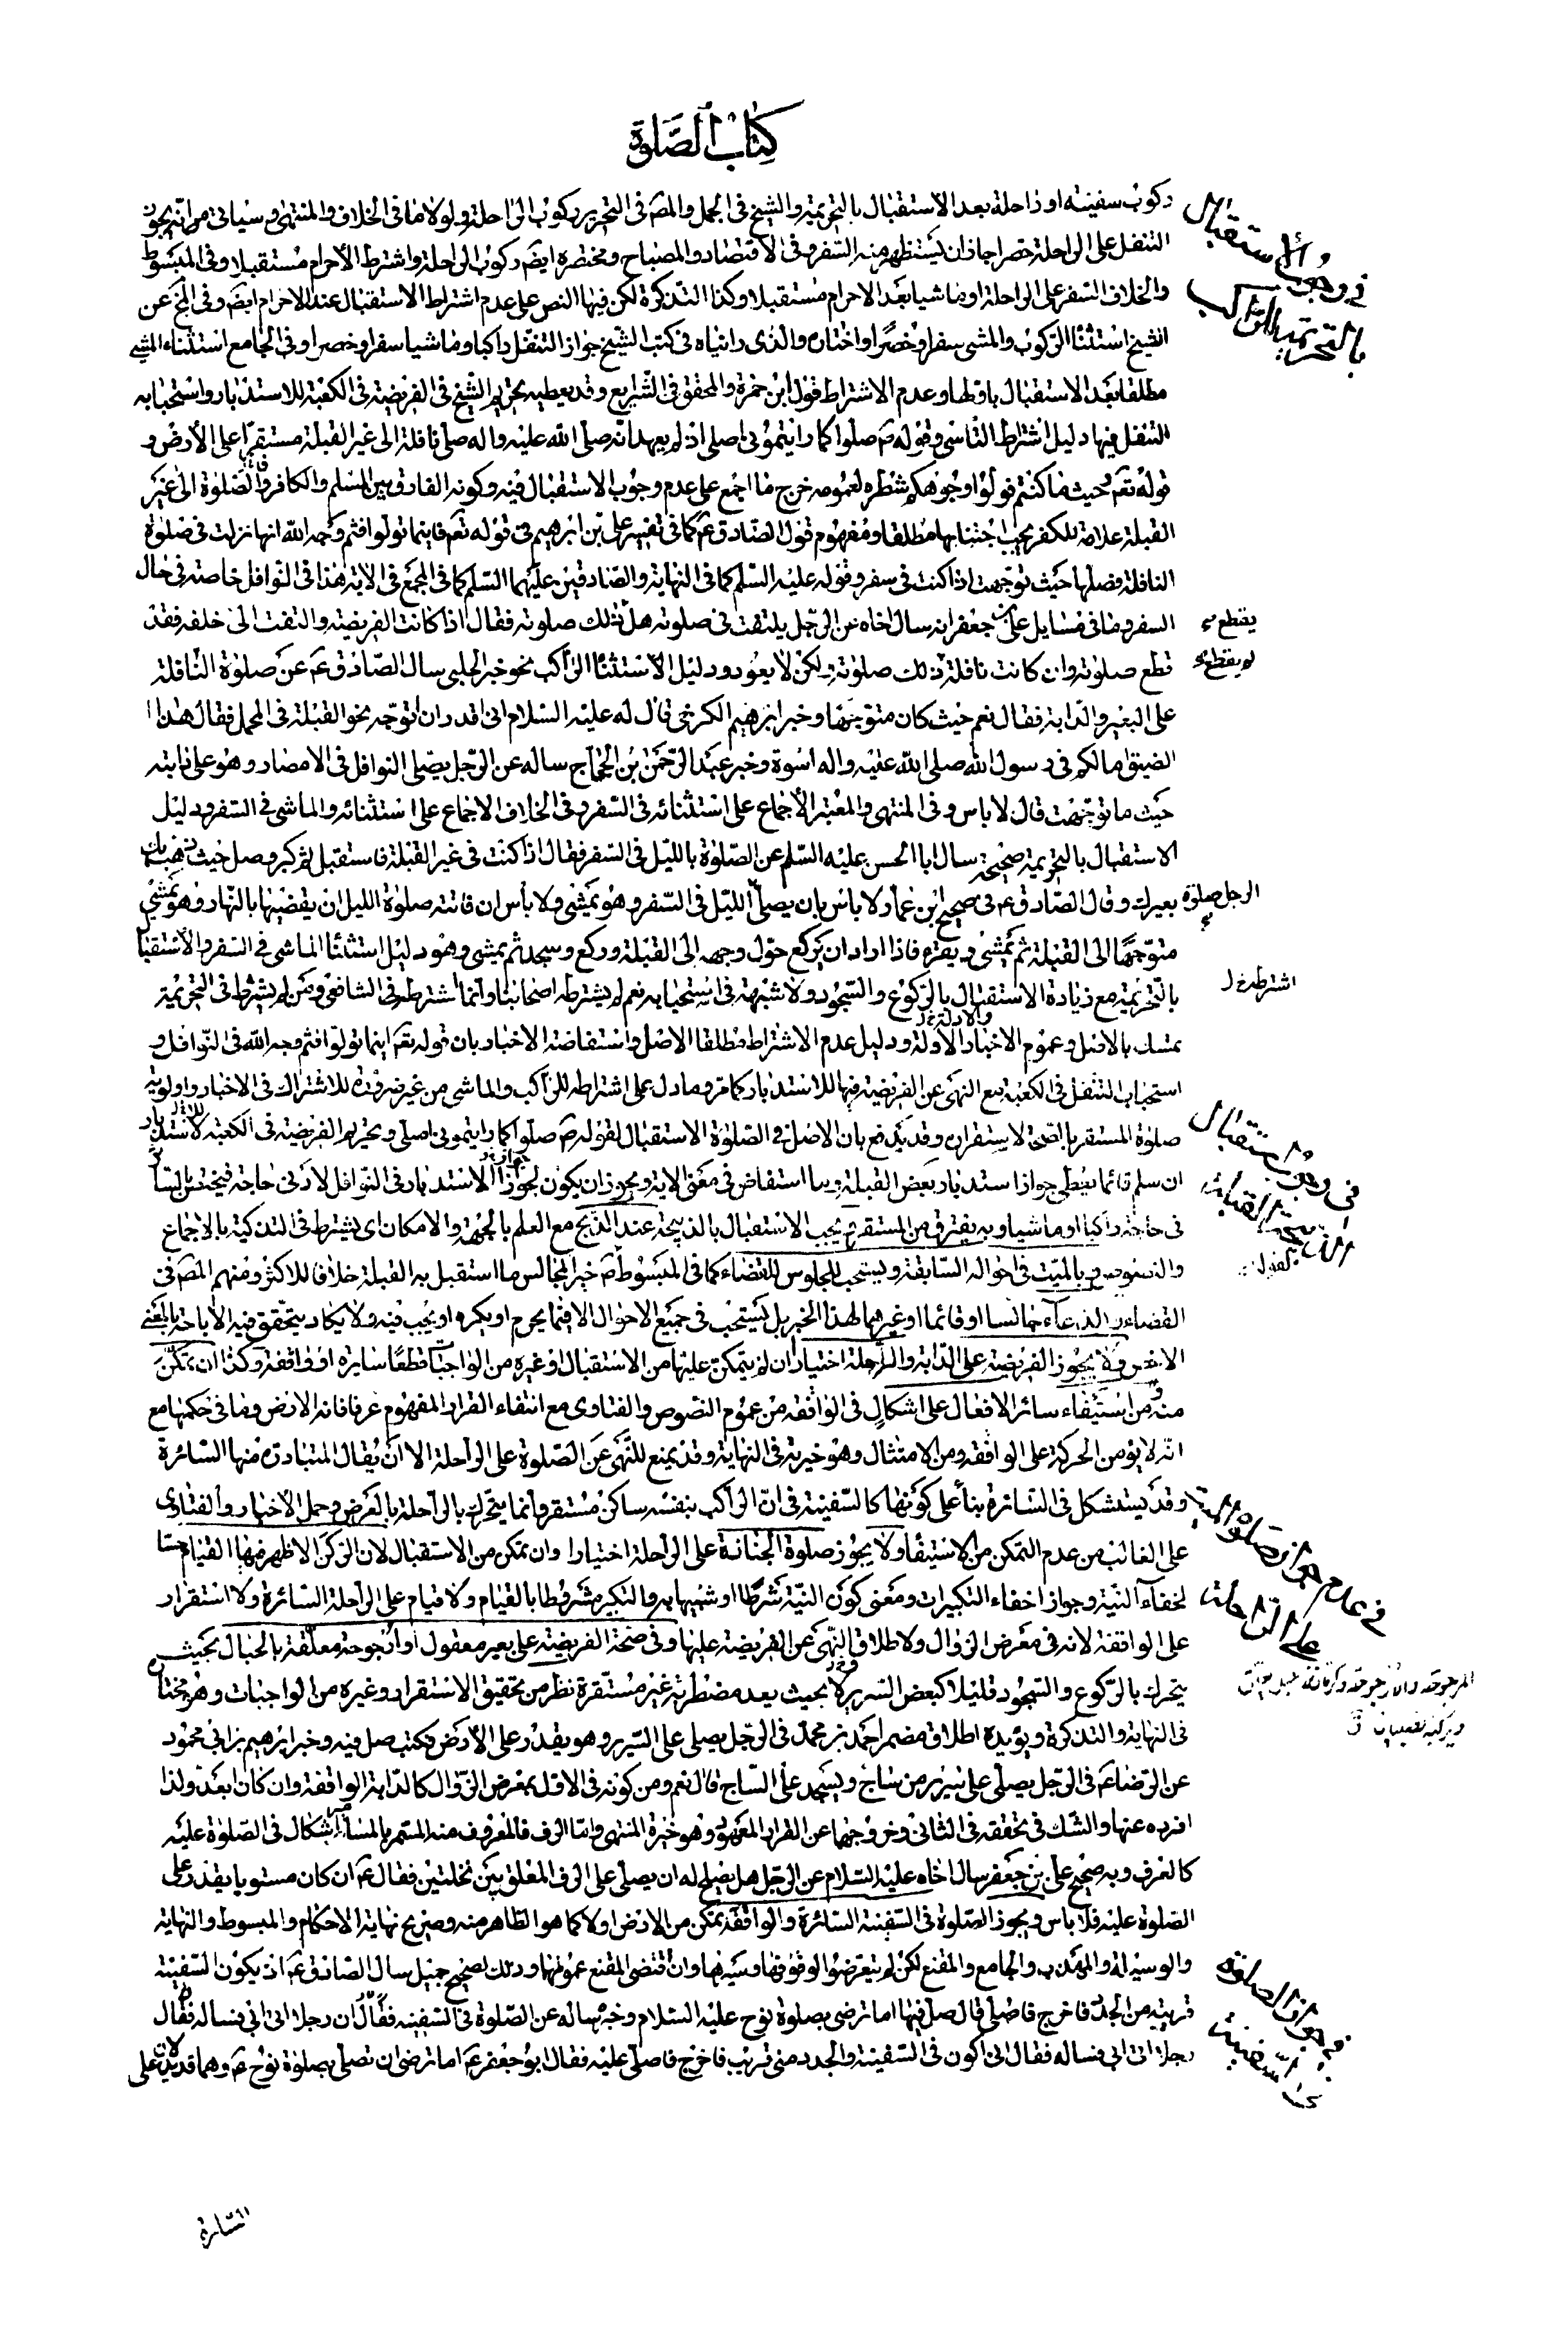 كتاب الصلوة
ركوب سفينة او راحلة بعد الاستقبال بالتحريمة والشيخ في الجمل والمصـ في التحرير ركوب الراحلة ولولا ما في الخلاف والمنتهى وسياتي من انه يجوز
التنفل على الراحلة حضرا جاز ان يستظهر منه السفر وفي الاقتصاد والمصباح ومختصره ايضـ ركوب الراحلة واشترط الاحرام مستقبلا وفي المبسوط
والخلاف السفر على الراحلة او ماشيا بعد الاحرام مستقبلا وكذا التذكرة لكن فيها النص على عدم اشتراط الاستقبال عند الاحرام ايضـ وفي لمح عن
الشيخ استثناء الركوب والمشي سفرا وحضرا واختاره والذي رايناه في كتب الشيخ جواز التنفل راكبا وماشيا سفرا وحضرا وفي الجامع استثناء المشي
مطلقا بعد الاستقبال باولها وعدم الاشتراط قول ابن حمزة والمحقق في الشرايع وقد يعطيه تحريم الشيخ في الفريضة في الكعبة للاستدبار واستحبابه
التنفل فيها دليل اشتراط التاسي وقوله صـ صلوا كما رايتموني اصلي اذ لم يعهد انه صلى الله عليه واله صلى نافلة الى غير القبلة مستقرا على الارض و
قوله تعـ وحيث ما كنتم فولوا وجوهكم شطره لعمومه خرج ما اجمع على عدم وجوب الاستقبال فيه وكونه الفارق بين المسلم والكافر والصلوة الى غير
القبلة علامة للكفر يجب اجتنابها مطلقا ومفهوم قول الصادق عـ كما في تفسير علي بن ابرهيم في قوله تعـ فاينما تولوا فثم وجه الله انها نزلت في صلوة
النافلة فصلها حيث توجهت اذا كنت في سفر وقوله عليه السلم كما في النهاية والصادقين عليهما السلم كما في المجمع في الاية هذا في النوافل خاصة في حال
السفر وما في مسايل علي بن جعفر انه سال اخاه عن الرجل يلتفت في صلوته هل ذلك صلوته فقال اذا كانت الفريضة والتفت الى خلفه فقد
قطع صلوته وان كانت نافلة ذلك صلوته ولكن لا يعود ودليل الاستثناء الراكب نحو خبر الحلبي سال الصادق عـ عن صلوة النافلة
على البعير والدابة فقال نعم حيث كان متوجها وخبر ابرهيم الكرخي قال له عليه السلام اني اقدر ان اتوجه نحو القبلة في المحمل فقال هذا
الضيق اما لكم في رسول الله صلى الله عليه واله اسوة وخبر عبد الرحمن بن الحجاج ساله عن الرجل يصلي النوافل في الامصار وهو على دابته
حيث ما توجهت قال لا باس وفي المنتهى والمعتبر الاجماع على استثنائه في السفر وفي الخلاف الاجماع على استثنائه والماشي في السفر ودليل
الاستقبال بالتحريمة صحيحة سال ابا الحسن عليه السلم عن الصلوة بالليل في السفر فقال اذا كنت في غير القبلة فاستقبل ثم كبر وصل حيث ذهب بك
بعيرك وقال الصادق عـ في صحيح ابن عمار لا باس بان يصلي الليل في السفر وهو يمشي ولا بأس ان فاتته صلوة الليل ان يقضيها بالنهار وهو يمشي
متوجها الى القبلة ثم يمشي ويقرء فاذا اراد ان يركع حول وجهه الى القبلة وركع وسجد ثم يمشي وهو دليل استثناء الماشي في السفر والاستقبال
بالتحريمة مع زيادة الاستقبال بالركوع والسجود ولا شبهة في استحبابه نعم لم يشترطه اصحابنا وانما اشترطه في الشافعي ومن لم يشترط في التحريمة
تمسك بالاصل وعموم الاخبار الاولة ودليل عدم الاشتراط مطلقا الاصل واستفاضة الاخبار بان قوله تعـ اينما تولوا فثم وجه الله في النوافل و
استحباب التنفل في الكعبة مع النهي عن الفريضة فيها للاستدبار كما مر وما دل على اشتراطه للراكب والماشي من غير ضرورة للاشتراك في الاخبار واولوية
صلوة المستقر بالصحة لاستقراره وقد يدفع بان الاصل في الصلوة الاستقبال لقوله صـ صلوا كما رايتموني اصلي وتحريم الفريضة في الكعبة للاستدبار
ان سلم فانما يعطي جواز استدبار بعض القبلة وبما استفاض في معنى الاية ويجوز ان يكون لجواز الاستدبار في النوافل لادنى حاجة فيختص بالساير
في حاجته راكبا او ماشيا وبه يفترق من المستقر ويجب الاستقبال بالذبيحة عند الذبح مع العلم بالجهة والامكان اي يشترط في التذكية بالاجماع
والنصوص وبالميت في احواله السابقة ويستحب للجلوس للقضاء كما في المبسوط صـ خير المجالس ما استقبل به القبلة خلافا للاكثر ومنهم المصـ في
القضاء والدعاء جالسا او قائما او غيرهما لهذا الخبر بل يستحب في جميع الاحوال الا فيما يحرم او يكره او يجب فيه ولا يكاد يتحقق فيه الاباحة بالمعنى
الاخص ولا يجوز الفريضة على الدابة والراحلة اختيارا ان لم يتمكن عليها من الاستقبال او غيره من الواجبات قطعا سايرة او واقفة وكذا ان تمكن
منه ومن استيفاء سائر الافعال على اشكال في الواقفة من عموم النصوص والفتاوى مع انتفاء القرار المفهوم عرفا فانه الارض وما في حكمها مع
انه لا يؤمن الحركة على الواقفة ومن الامتثال وهو خيرته في النهاية وقد يمنع للنهي عن الصلوة على الراحلة الا ان يقال المتبادر منها السائرة
وقد يستشكل في السائرة بناء على كونها كالسفينة في ان الراكب بنفسه ساكن مستقر وانما يتحرك بالراحلة بالعرض وحمل الاخبار والفتاوى
على الغالب من عدم التمكن من الاستيفاء ولا يجوز صلوة الجنازة على الراحلة اختيارا وان تمكن من الاستقبال لان الركن الاظهر فيها القيام حسا
لخفاء النية وجواز اخفاء التكبيرات ومعنى كون النية شرطا او شبيها به والتكبير مشروطا بالقيام ولا قيام على الراحلة السائرة ولا استقرار
على الواقفة لانه في معرض الزوال ولاطلاق النهي عن الفريضة عليها وفي صحة الفريضة على بعير معقول او ارجوحة معلقة بالحبال بحيث لا
يتحرك بالركوع والسجود قليلا كبعض السرير لا بحيث يعد مضطربة غير مستقرة نظر من تحقيق الاستقرار وغيره من الواجبات وهو مختاره
في النهاية والتذكرة ويؤيده اطلاق مضمر احمد بن محمد في الرجل يصلي على السرير وهو يقدر على الارض فكتب صل فيه وخبر ابرهيم بن ابي محمود
عن الرضا عـ في الرجل يصلي على سرير من ساج ويسجد على الساج قال نعم ومن كونه في الاول بمعرض الزوال كالدابة الواقفة وان كان ابعد ولذا
افرده عنها والشك في تحققه في الثاني وخروجها عن القرار المعهود وهو خيرة المنتهى واما الرف فالمعروف منه المستمر بالمسامير اشكال في الصلوة عليه
كالغرف وبه صحيح علي بن جعفر سال اخاه عليه السلام عن الرجل هل يصلح له ان يصلي على الرف المعلق بين نخلتين فقال عـ ان كان مستويا يقدر على
الصلوة عليه فلا باس ويجوز الصلوة في السفينة السائرة والواقفة تمكن من الارض او لا كما هو الظاهر منه وصريح نهاية الاحكام والمبسوط والنهاية
والوسيلة والمهذب والجامع والمقنع لكن لم يتعرضوا لوقوفها وسيرها وان اقتضى المقنع عمومها وذلك لصحيح جميل سال الصادق عـ اذ يكون السفينة
قريبة من الجد فاخرج فاصلي قال صل فيها اما ترضى بصلوة نوح عليه السلام وخبره ساله عن الصلوة في السفينه فقال ان رجلا اتى ابي فساله فقال
رجلا اتى ابي فساله فقال اني اكون في السفينة والجدد مني قريب فاخرج فاصلي عليه فقال ابو جعفر عـ اما ترضى ان تصلي بصلوة نوح عـ وهما قد يدلان على
في وجوب الاستقبال
بالتحريمة للراكب
يقطع
لم يقطع
الرجل صلوة
اشترطه خ ل
في وجوب استقبال
الذبيحة القبلة
في عدم جواز صلوة الميت
على الراحلة
في جواز الصلوة
في السفينة
السائرة